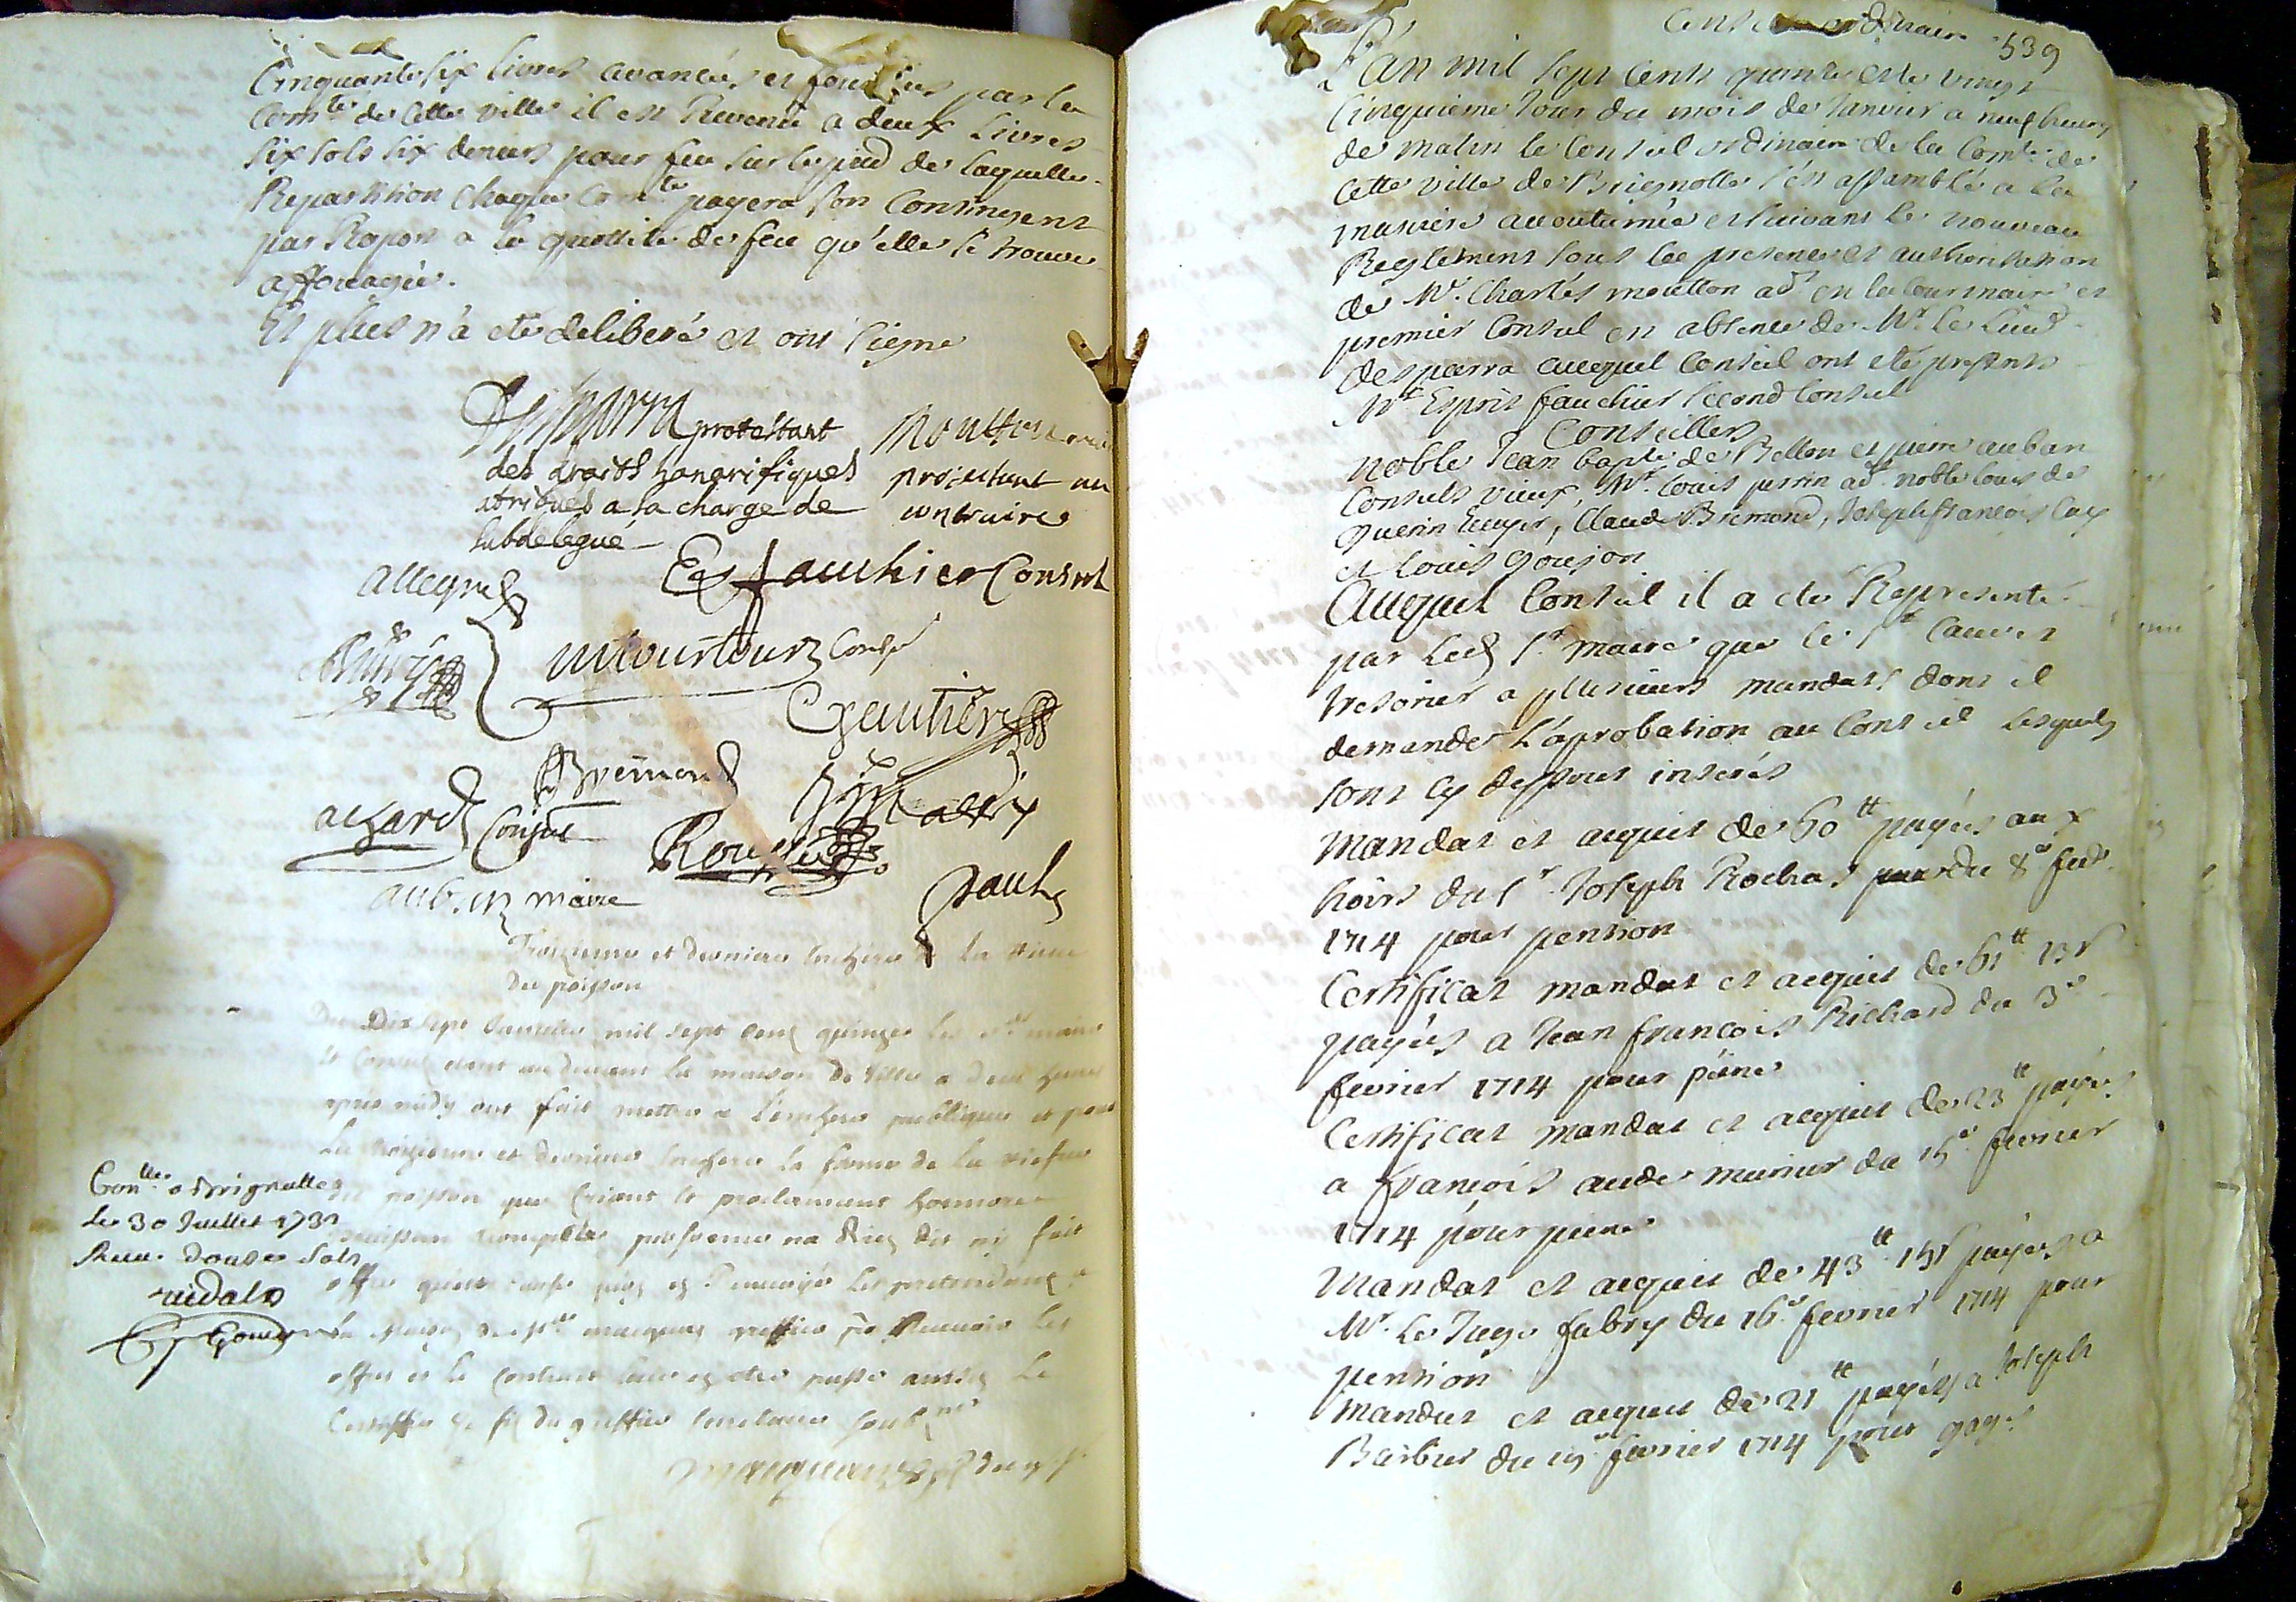 Cinquante six livres avancées et fournies par la
Com.te de cette ville il est Revenu a deux Livres
six sols six deniers pour feu sur le pied de laquelle
Repartition Chaque Com.te payera son Contingent
par Raport a la quottité de feu qu'elle se trouve
affouagée.
Et plus n'a eté deliberé et ont signe
Desparra protestant
des droits honorifiques
atribues a sa charge de
subdelegué
Moutton maire
protestant au
contraire
Allegre
Es fauchier Consul
Consul
Gautier
Bremond
achard Consul
Roux
aubin maire
Paul
Troizieme et derniere Enchere de la
du poisson
Du Dix sept Janvier mil sept cens quinze les maire
et Consuls etant au devant la maison de Ville a deux heures
apres midy ont fait mettre a l'enchere publique et pour
La troizieme et derniere Enchere la ferme de la
du poisson que Criant et proclamant honnoré
trompette personne na Rien dit ny fait
offre
greffier po. Recevoir les
offres et le Contract leur en etre passé
greffier secretaire soub.né
Con.lle a Brignolle
Le 30 Juillet 1731
Receu Douse Sols
vidal
Conseil ordinaire
539
L'an mil sept cents quinse et le vingt
Cinquieme Jour du mois de Janvier a neuf heures
de matin le Conseil ordinaire de la Com.té de
Cette ville de Brignolle s'est assamblé a la
maniere accoutumée et suivant le nouveau
Reglement sous la presence et authorisation
de M.r Charles moutton ad.t en la Cour maire et
premier Consul en absence de M.r Le Lieut.
desparra auequel Conseil ont eté presents
M.r Esprit fauchier second Consul
Conseillers
noble Jean bap.te de Bellon et pierre auban
Consuls vieux, M.r Louis perrin ad.t noble Louis de
Guerin Ecuyer, Claude Bremond, Joseph francois Cay
et Louis goujon
Auquel Conseil il a eté Representé
par Led. S.r maire que le S.r Cauvet
tresorier a plusieurs mandats dont il
demande L'aprobation au Conseil Lesquels
sont Cy dessous inserés
Mandat et acquit de 60 tt payées aux
hoirs du S.r Joseph Rochas du 8.e fev.
1714 pour pention
Certificat mandat et acquit de 61 tt 13 s
payées a Jean francois Richard du 3.e
fevrier 1714 pour peine
Certificat mandat et acquit de 23 tt payées
a francois aude munier du 15.e fevrier
1714 pour peine
Mandat et acquit de 43 tt 15 s payées a
M.r Le Juge fabry du 16.e fevrier 1714 pour
pention
Mandat et acquit de 21 tt payées a Joseph
Barbier du 19 fevrier 1714 pour gages